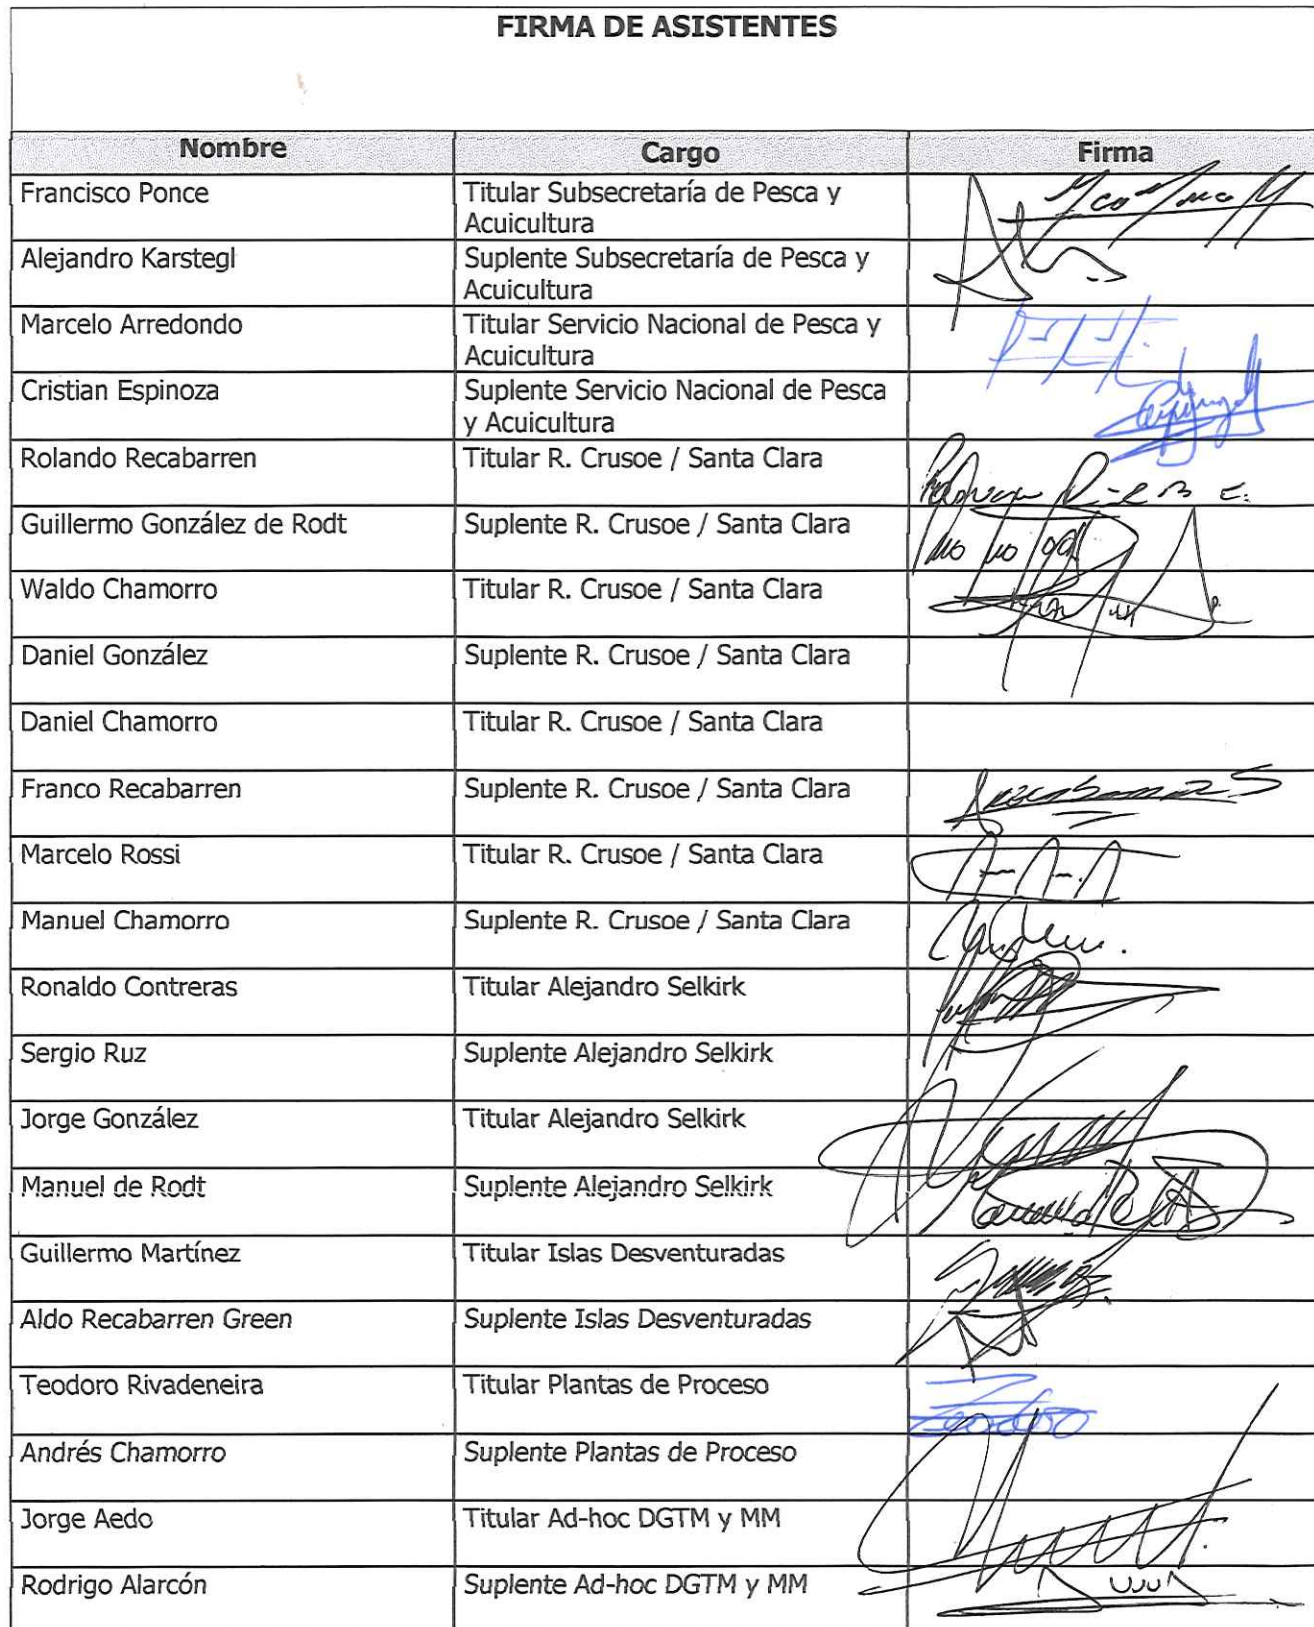 FIRMA DE ASISTENTES
Nombre Cargo Firma
Francisco Ponce Titular Subsecretaría de Pesca y
Acuicultura
Alejandro Karstegl Suplente Subsecretaría de Pesca y
Acuicultura
Marcelo Arredondo Titular Servicio Nacional de Pesca y
Acuicultura
Cristian Espinoza Suplente Servicio Nacional de Pesca
y Acuicultura
Rolando Recabarren Titular R. Crusoe / Santa Clara
Guillermo González de Rodt Suplente R. Crusoe / Santa Clara
Waldo Chamorro Titular R. Crusoe / Santa Clara
Daniel González Suplente R. Crusoe / Santa Clara
Daniel Chamorro Titular R. Crusoe / Santa Clara
Franco Recabarren Suplente R. Crusoe / Santa Clara
Marcelo Rossi Titular R. Crusoe / Santa Clara
Manuel Chamorro Suplente R. Crusoe / Santa Clara
Ronaldo Contreras Titular Alejandro Selkirk
Sergio Ruz Suplente Alejandro Selkirk
Jorge González Titular Alejandro Selkirk
Manuel de Rodt Suplente Alejandro Selkirk
Guillermo Martínez Titular Islas Desventuradas
Aldo Recabarren Green Suplente Islas Desventuradas
Teodoro Rivadeneira Titular Plantas de Proceso
Teodoro
Andrés Chamorro Suplente Plantas de Proceso
Jorge Aedo Titular Ad-hoc DGTM y MM
Rodrigo Alarcón Suplente Ad-hoc DGTM y MM